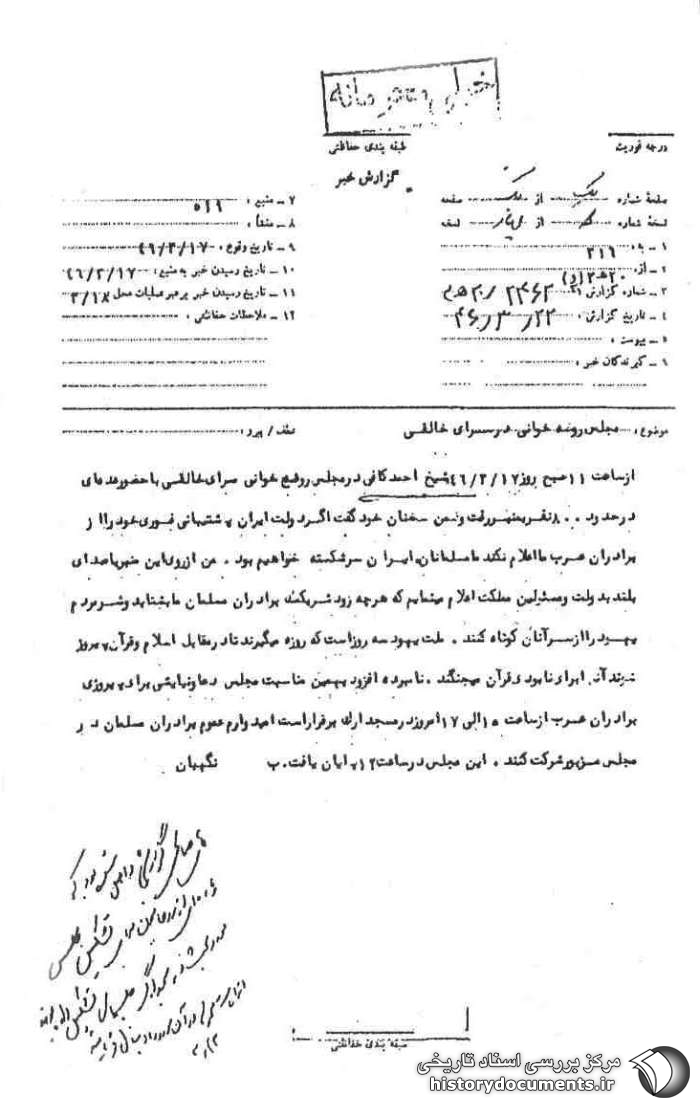 خیلی محرمانه
درجه فوریت
طبقه بندی حفاظتی
گزارش خبر
صفحه شماره یک از یک صفحه
نسخه شماره از نسخه
۱ ـ به : ۳۱۶
۲ ـ از : ۲۰ ه ۳ (د)
۳ ـ شماره گزارش :
۴ ـ تاریخ گزارش : ۴۶/۳/۲۲
۵ ـ پیوست :
۶ ـ گیرندگان خبر :
۷ ـ منبع :
۸ ـ منشأ :
۹ ـ تاریخ وقوع : ۴۶/۳/۱۷
۱۰ ـ تاریخ رسیدن خبر به منبع : ۴۶/۳/۱۷
۱۱ ـ تاریخ رسیدن خبر برهبر عملیات محل ۳/۱۸
۱۲ ـ ملاحظات حفاظتی :
موضوع : مجلس روضه خوانی در سرای خالقی
عطف / پیرو :
از ساعت ۱۱ صبح روز ۴۶/۳/۱۷ شیخ احمد کافی در مجلس روضه خوانی سرای خالقی با حضور عده ای
در حدود ۸۰۰ نفر بمنبر رفت و ضمن سخنان خود گفت اگر دولت ایران پشتیبانی فوری خود را از
برادران عرب ما اعلام نکند ما مسلمانان ایران سرشکسته خواهیم بود . من از روی این منبر با صدای
بلند بدولت و مسئولین مملکت اعلام مینمایم که هرچه زود تر بکمک برادران مسلمان ما بشتابید و شر مردم
یهود را از سر آنان کوتاه کنند . ملت یهود سه روز است که روزه میگیرند تا در مقابل اسلام و قرآن پیروز
شوند آنها برای نابودی قرآن میجنگند . نامبرده افزود بهمین مناسبت مجلس دعا و نیایشی برای پیروزی
برادران عرب از ساعت ۱۵ الی ۱۷ امروز در مسجد ارک برقرار است امیدوارم عموم برادران مسلمان در
مجلس مزبور شرکت کنند . این مجلس در ساعت ۱۲ پایان یافت . ب نگهبان
طبقه بندی حفاظتی
مرکز بررسی اسناد تاریخی
historydocuments.ir